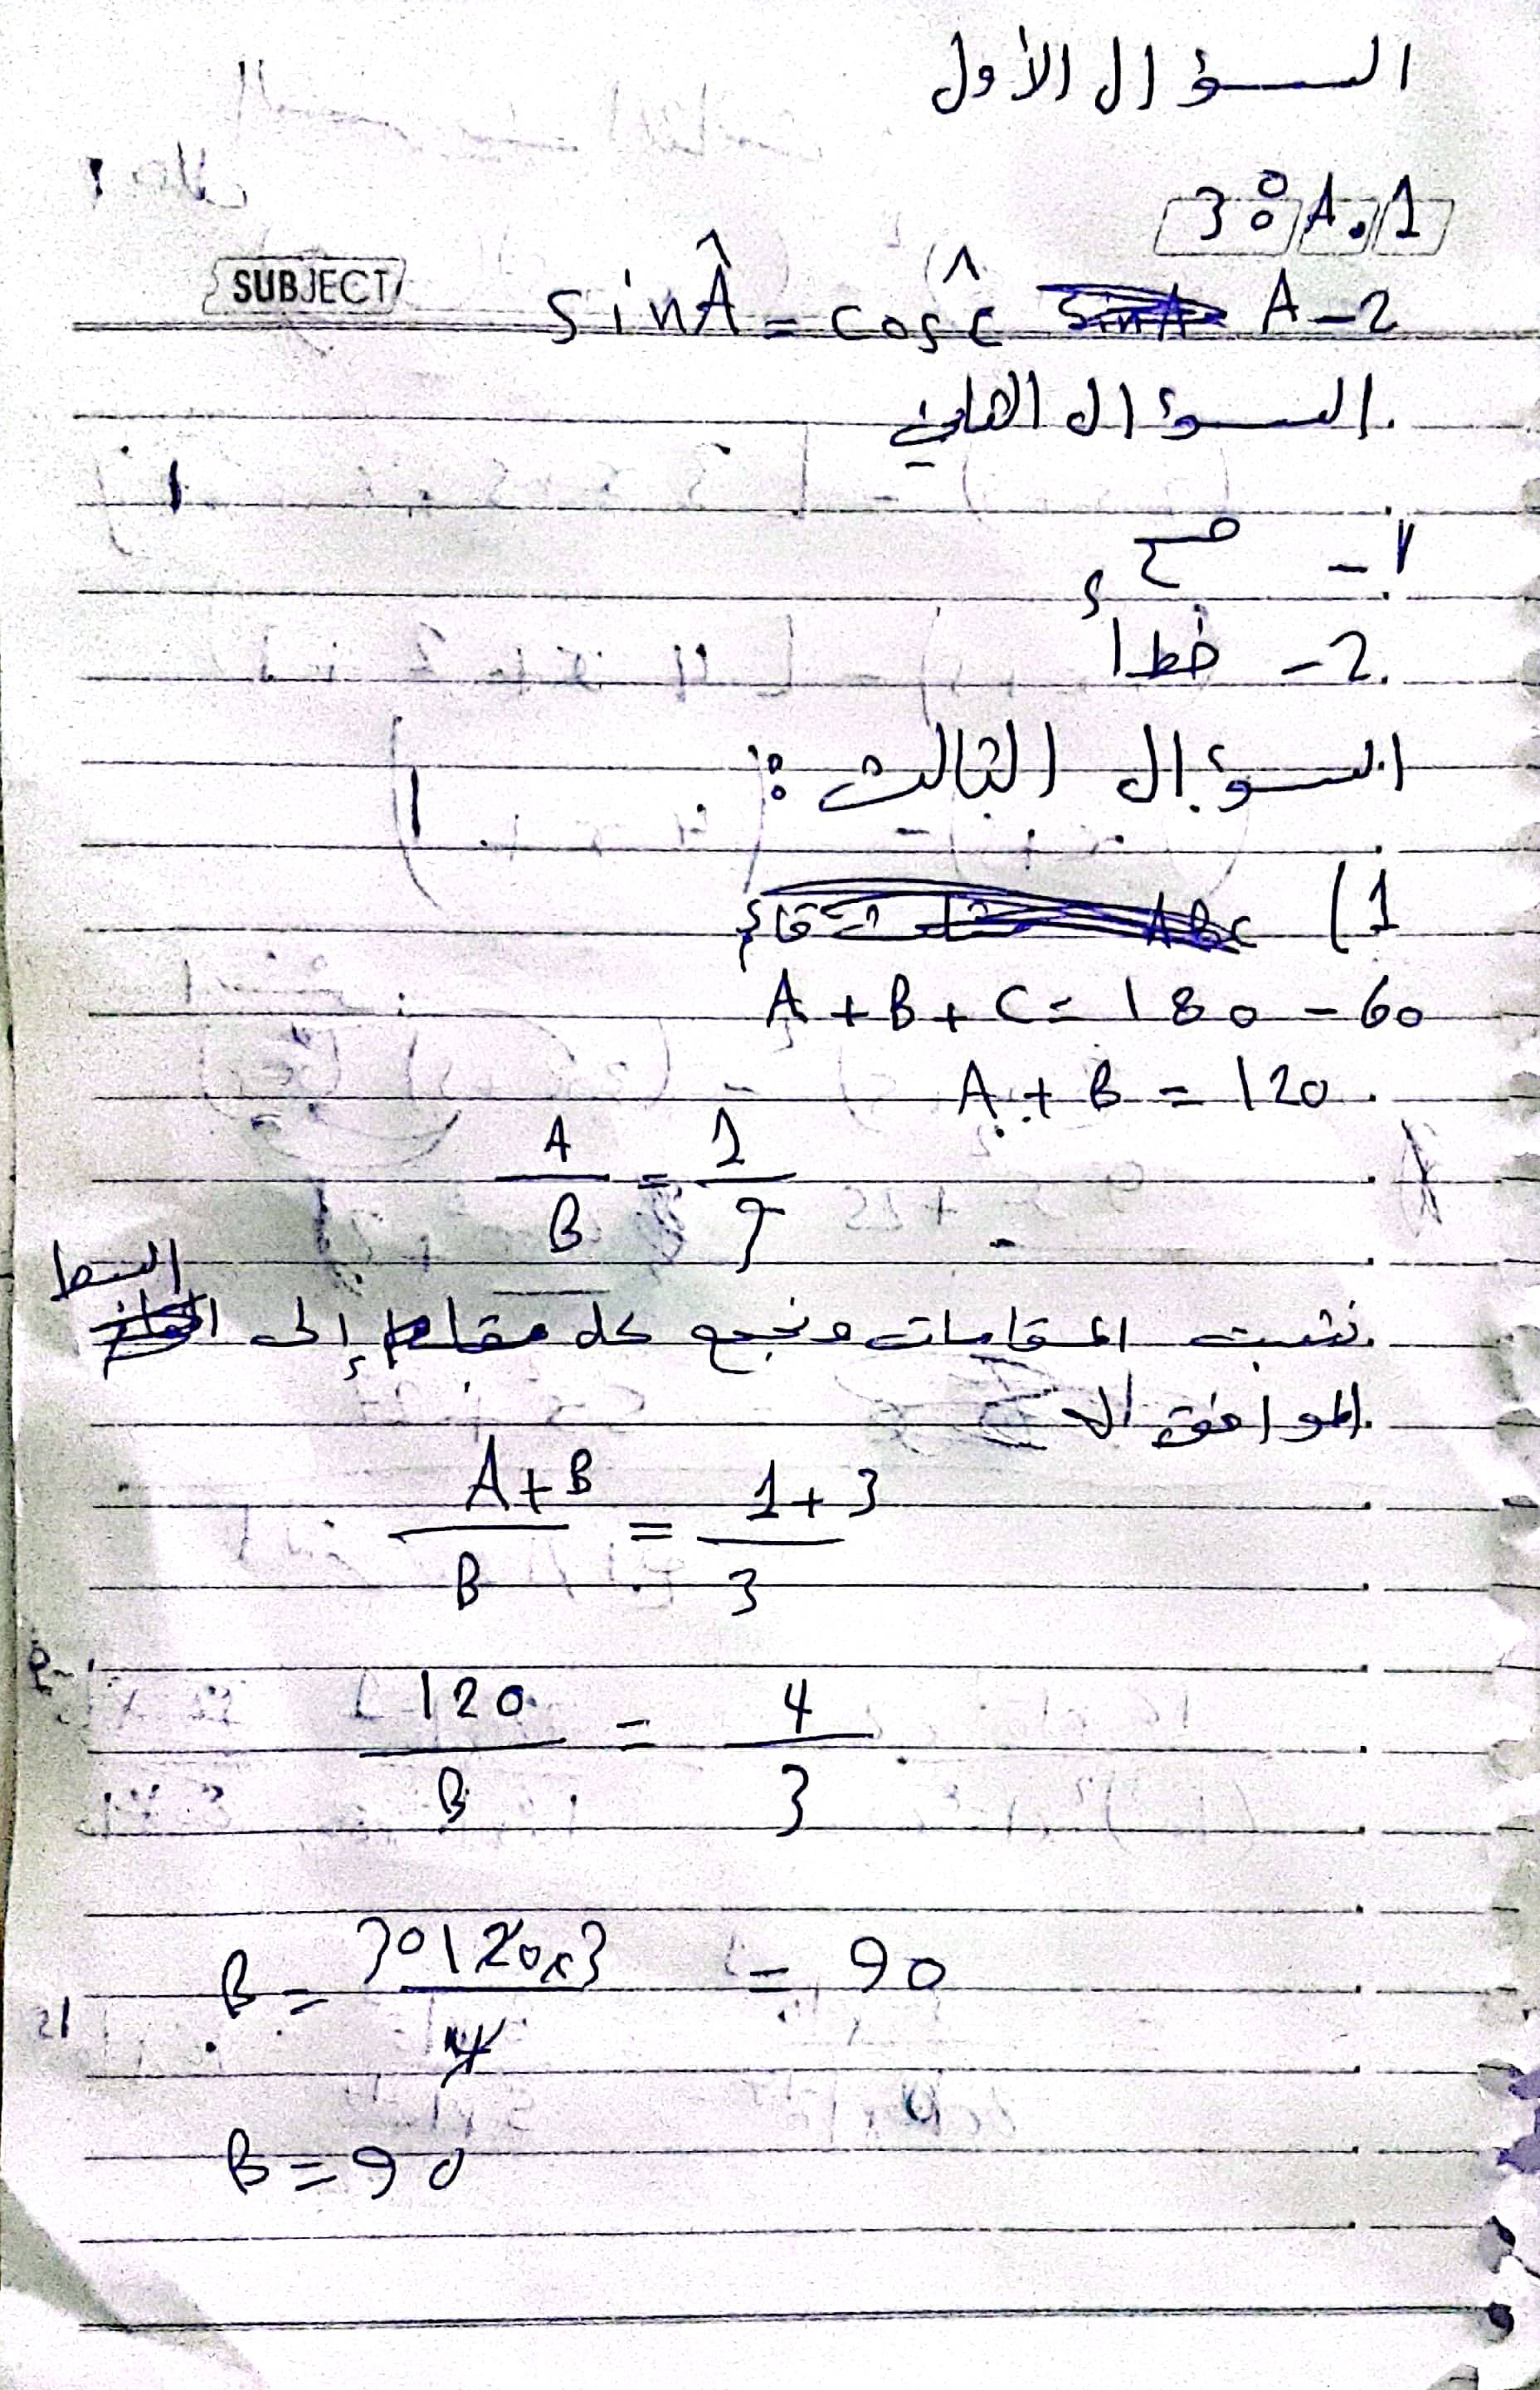 السؤال الأول
1. A : 3
SUBJECT
2 - A sin Â = cos ĉ
السؤال الثاني
1 - صح
2 - خطأ
السؤال الثالث :
1)
A + B + C = 180 - 60
A + B = 120
A/B = 1/3
نثبت المقامات ونجمع كل مقام إلى البسط
الموافق
A+B/B = 1+3/3
120/B = 4/3
B = 30 120×3/4 = 90
B = 90